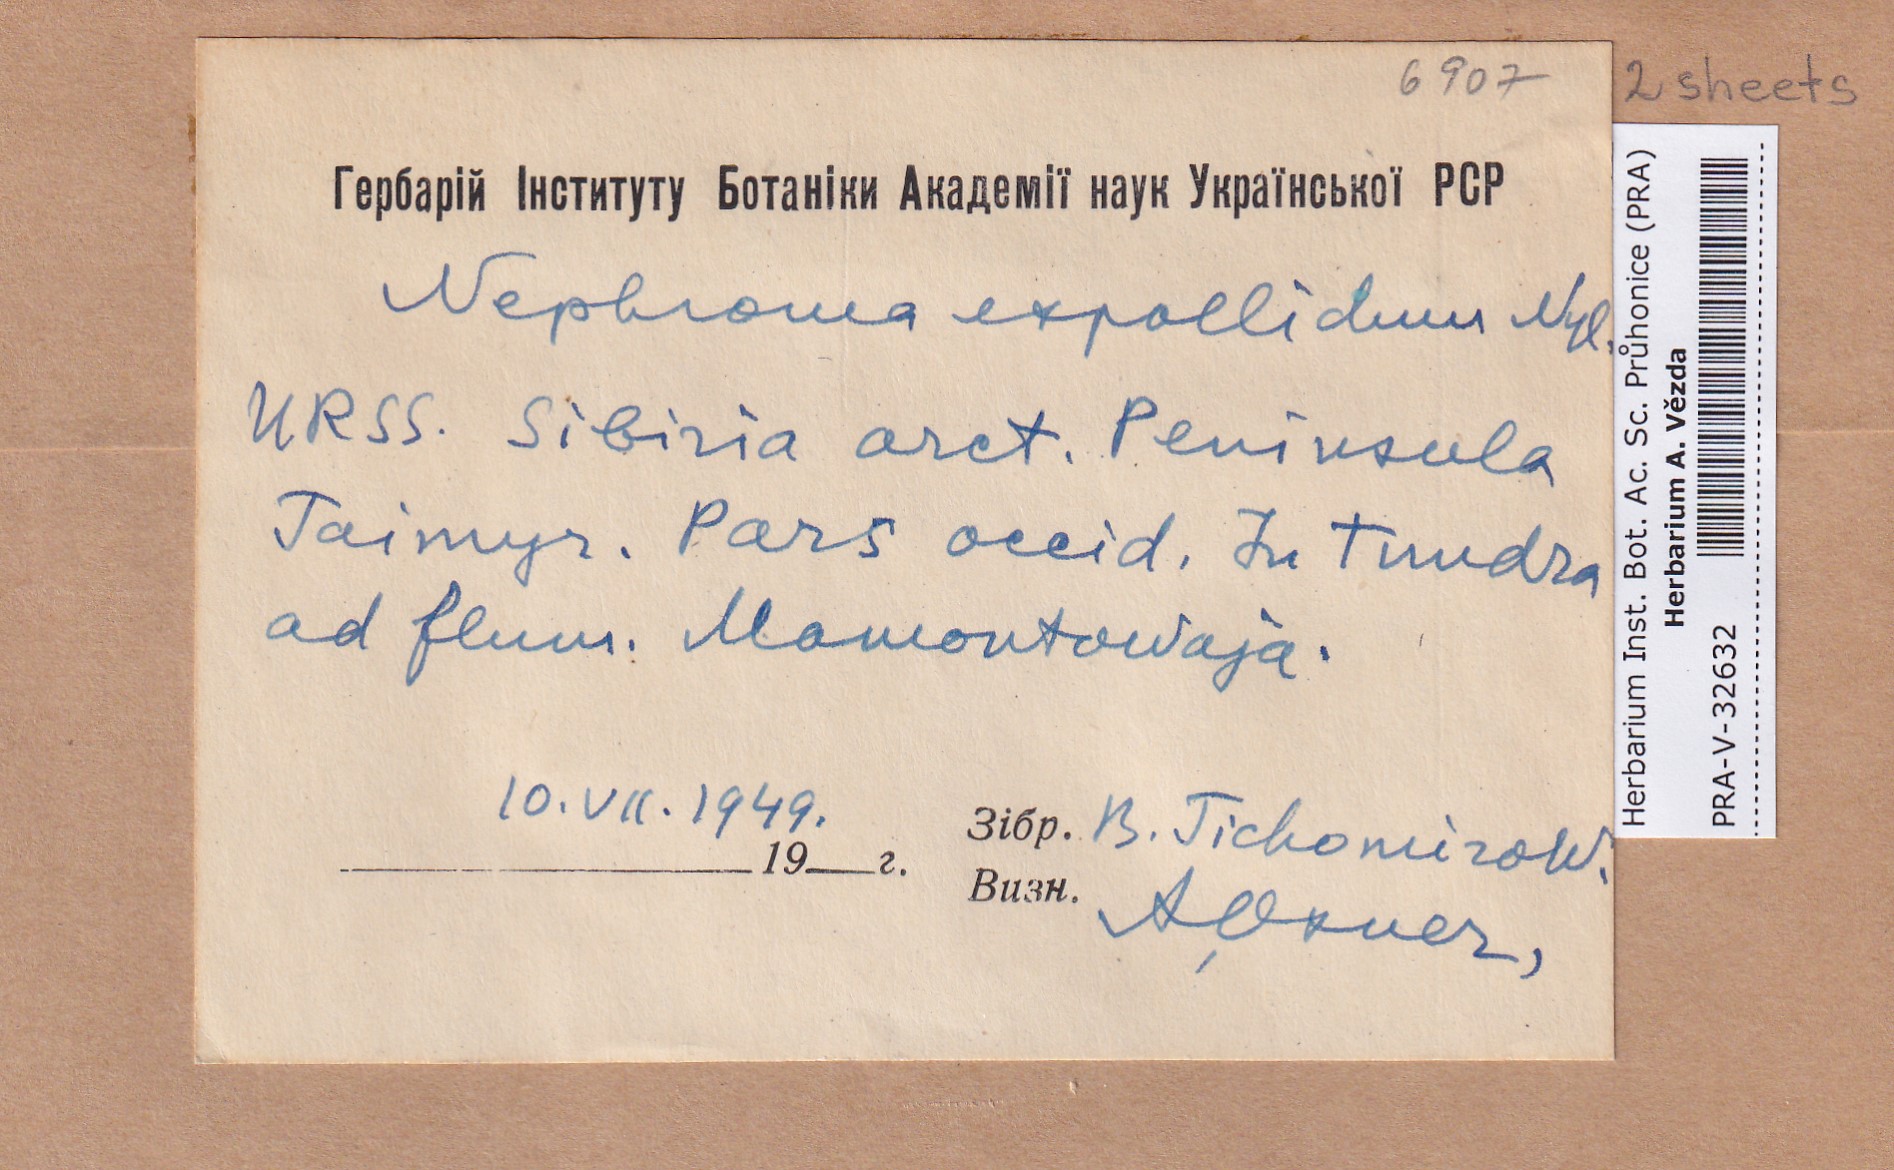 6907
2 sheets
Гербарій Інституту Ботаніки Академії наук Української РСР
Nephroma expallidum Nyl.
URSS. Sibiria arct. Peninsula
Taimyr. Pars occid. In tundra
ad flum. Mamontowaja.
10.VII.1949.
19 г.
Зібр. B. Tichomirow.
Визн. A. Oxner,
Herbarium Inst. Bot. Ac. Sc. Průhonice (PRA)
Herbarium A. Vězda
PRA-V-32632